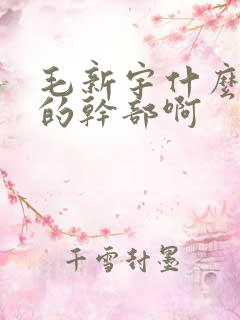 毛新宇什麼
的幹部啊
千雪封墨